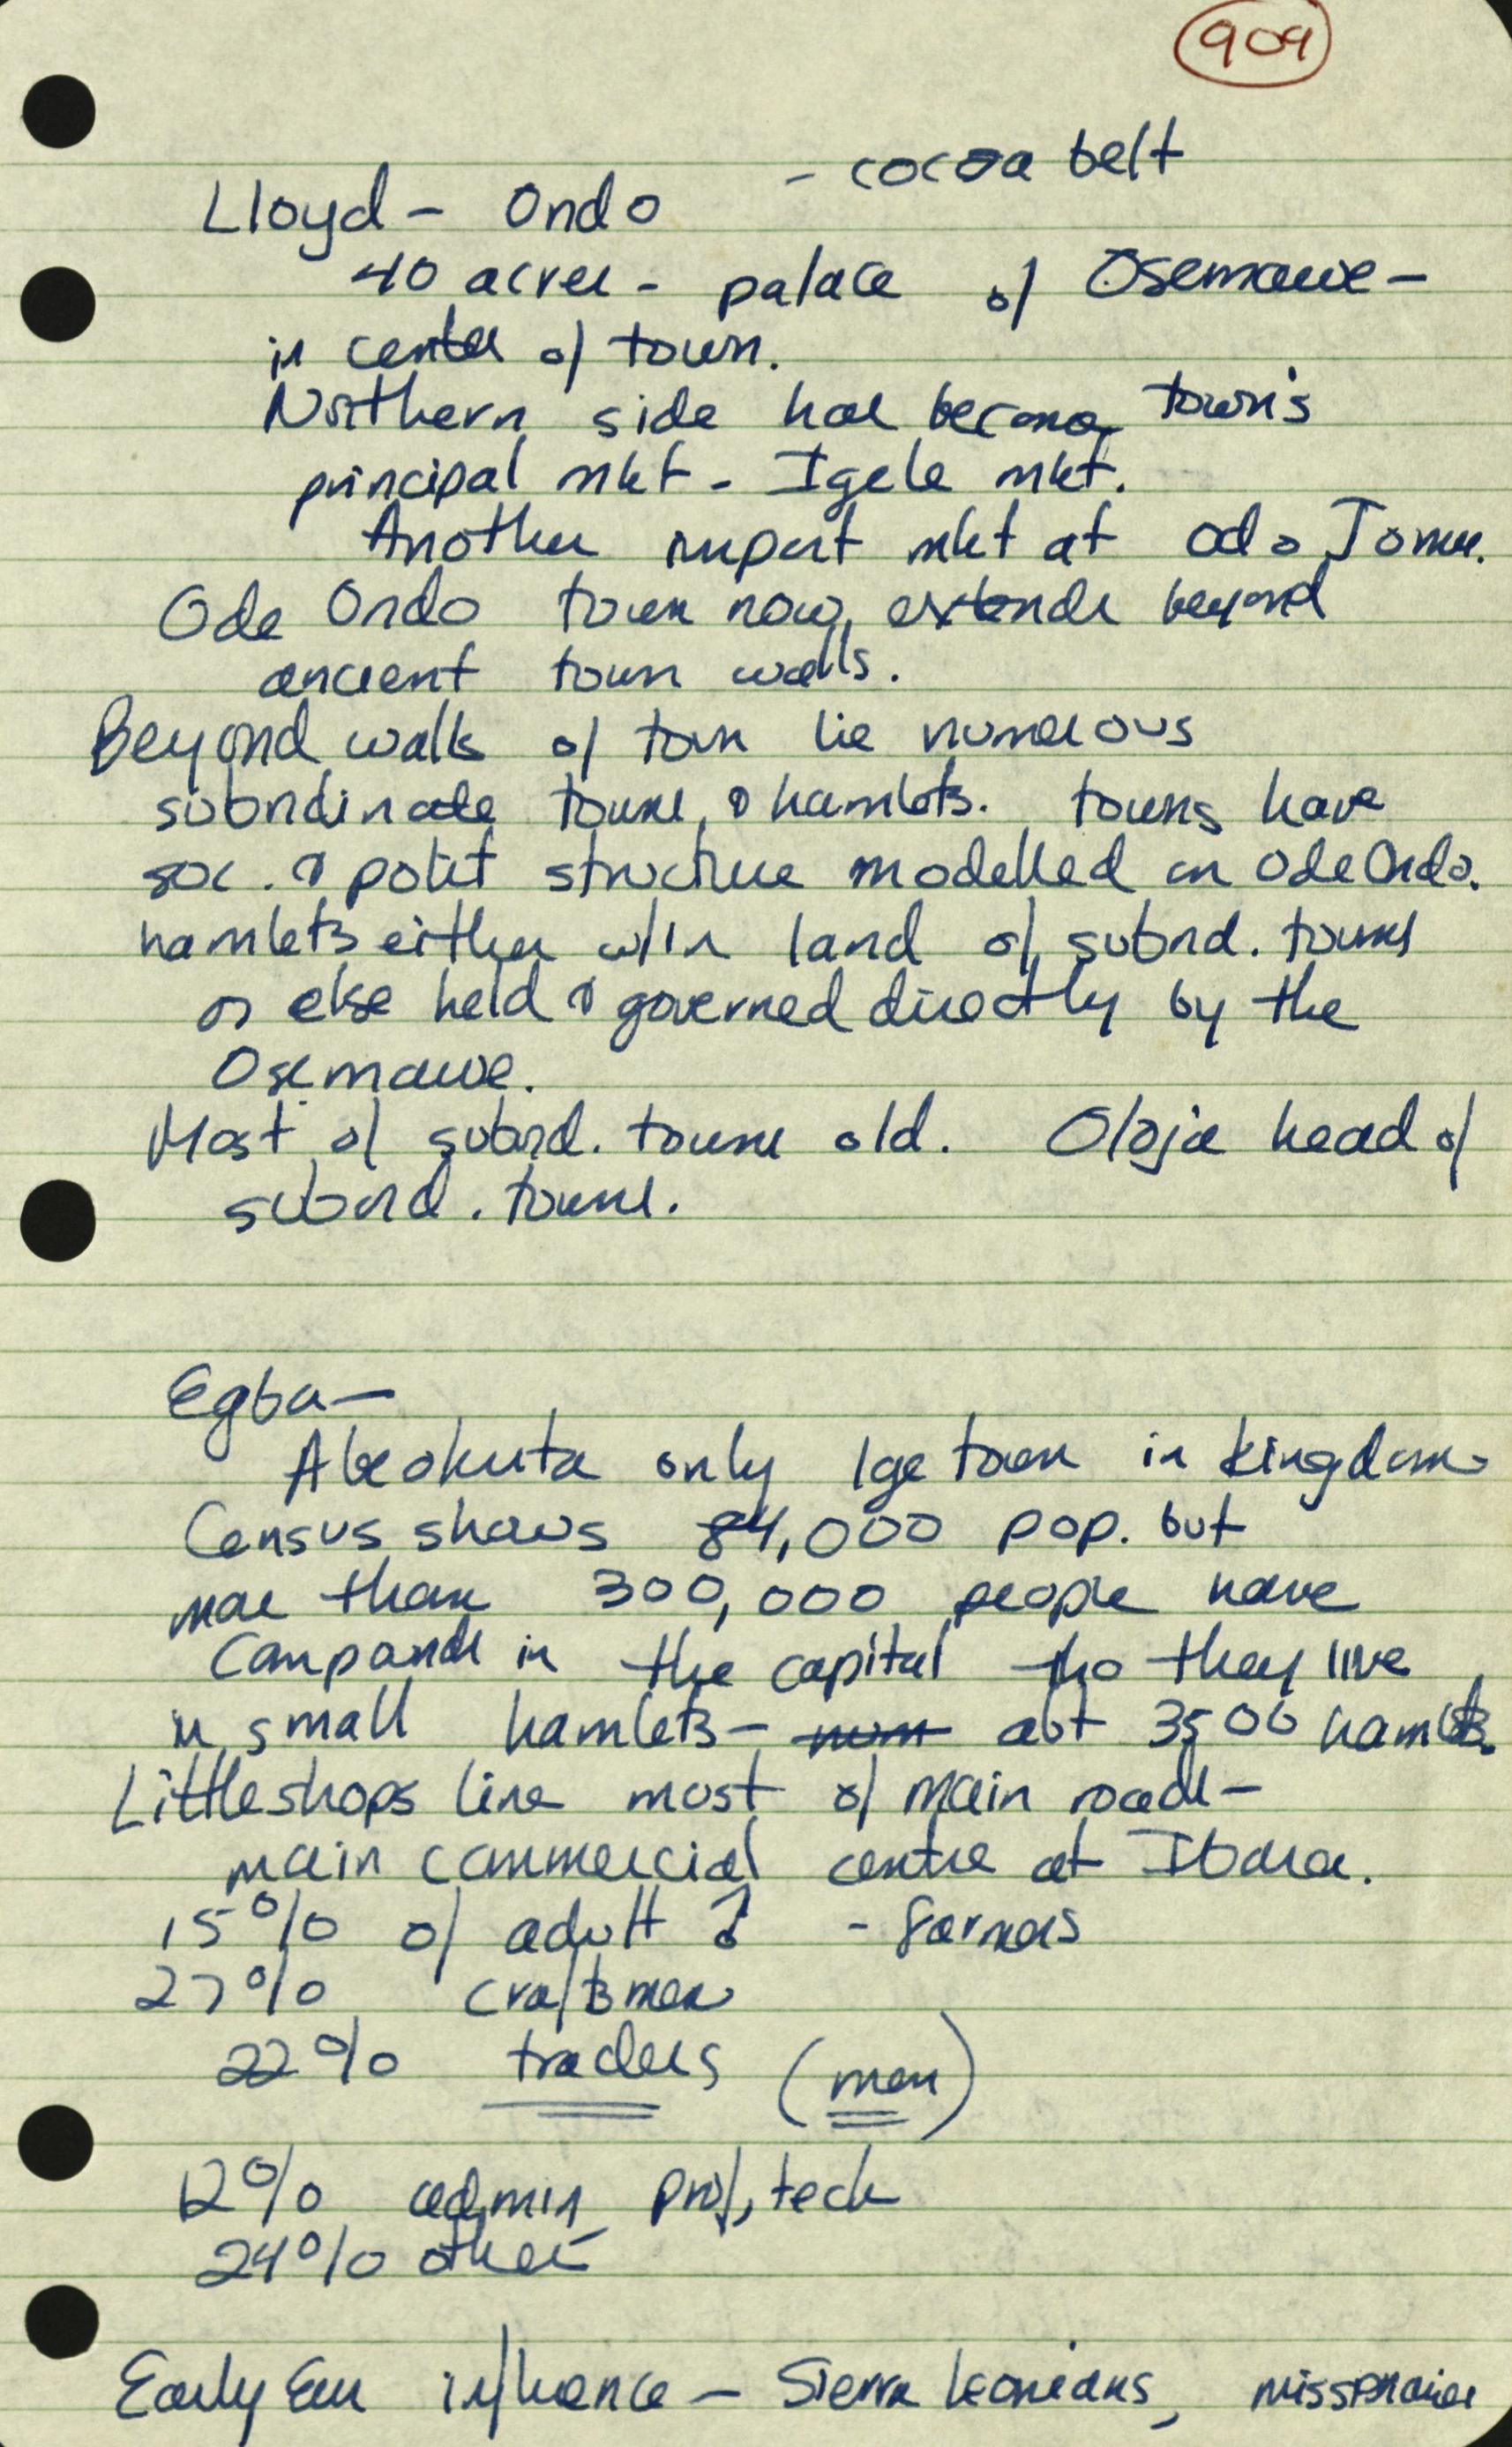 909
Lloyd - Ondo - cocoa belt
40 acres - palace of Osemawe -
in center of town.
Northern side has become town's
principal mkt - Igele mkt.
Another import mkt at Odo
Ode Ondo town now extends beyond
ancient town walls.
Beyond walls of town lie numerous
subordinate towns & hamlets. towns have
soc. & polit structure modelled on Ode Ondo.
hamlets either w/in land of subord. towns
or else held & governed directly by the
Osemawe.
Most of subord. towns old. Oloja head of
subord. towns.
Egba -
Abeokuta only lge town in kingdom.
Census shows 84,000 pop. but
more than 300,000 people have
compounds in the capital tho they live
in small hamlets - num abt 3500 hamlets.
Little shops line most of main roads -
main commercial centre at Ibara.
15% of adult ♂ - farmers
27% craftsmen
22% traders (men)
12% admin, prof, tech
24% other
Early Eur influence - Sierra Leonians, missionaries